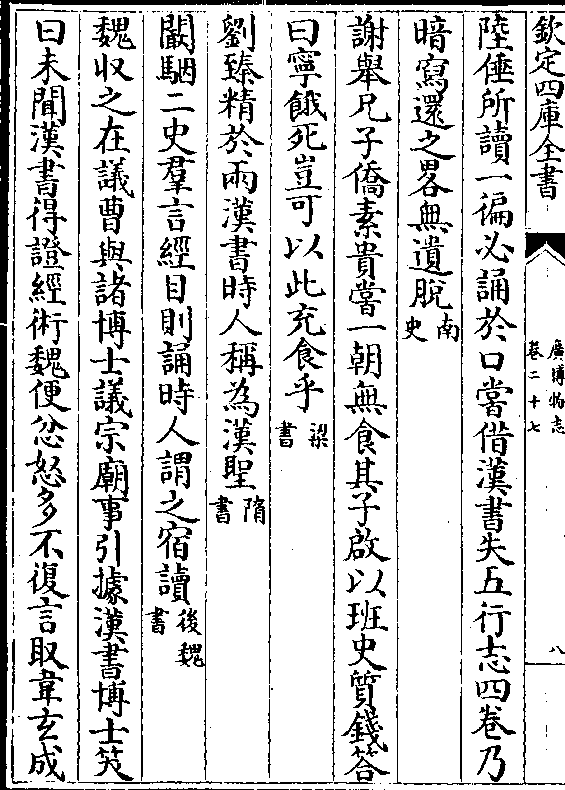 欽定四庫全書
廣博物志
卷二十七
八
陸倕所讀一徧必誦於口嘗借漢書失五行志四卷乃
暗寫還之畧無遺脫南史
謝舉兄子僑素貴嘗一朝無食其子啟以班史質錢答
曰寧餓死豈可以此充食乎梁書
劉臻精於兩漢書時人稱為漢聖隋書
闞駰二史羣言經目則誦時人謂之宿讀後魏書
魏収之在議曹與諸博士議宗廟事引據漢書博士笑
曰未聞漢書得證經術魏便忿怒多不復言取韋玄成